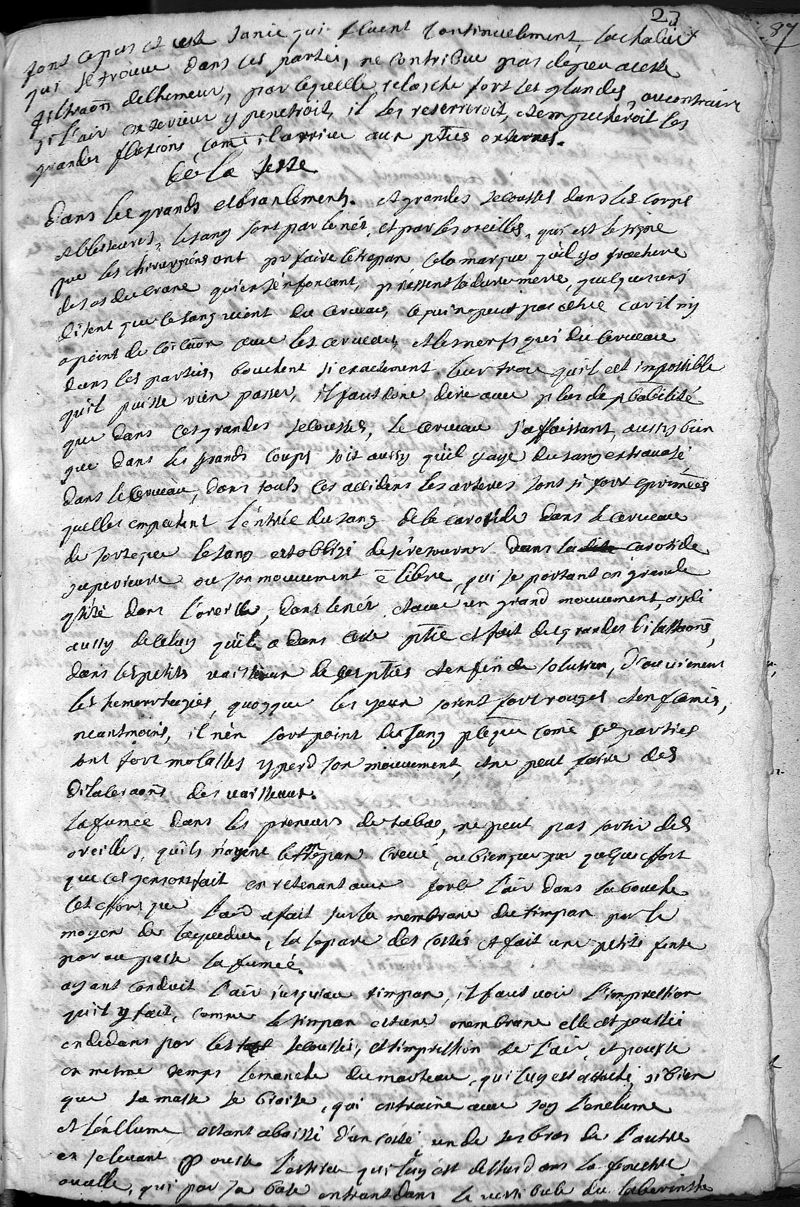 27
87
sont ce pus et cette sanie qui fluent continuellement, la chaleur
qui se trouve dans ces parties, ne contribue pas de peu a cette
filtraõn de lhumeur, par laquelle relasche fort les glandes, au contraire
si l'air exterieur y penetroit, il les reserreroit, et empecheroit les
grandes fluxions, comẽ il arrive aux pties externes.
de la teste
Dans les grands esbranlements. et grandes secousses dans les corps
et blesseures, le sang sort par le nés, et par les oreilles, qui est le signe
que les chirurgiens ont pr faire le trepan cela marque qu'il y a fracture
des os du crane qui en s'enfonçant, pressent la dure mere, quelques uns
disent que le sang vient du cerveau, ce qui ne peut pas estre car il n'y
a point de cõicaõn avec les cerveau, et les nerfs qui du cerveau
dans les parties, bouchent si exactement leur trou qu'il est impossible
qu'il puisse rien passer, il faut donc dire avec plus de pbabilité
que dans ces grandes secousses, le cerveau s'affaissant, aussy bien
que dans les grands coups soit aussy qu'il y aye du sang extravasé
dans le cerveau, dans touts ces accidens les arteres sont si fort cprimées
quelles empechent l'entrée du sang de la carotide dans le cerveau
de sorte que le sang est obligé de s'en retourner dans la carotide
superieure ou son mouvement ẽ libre, qui se portant en grande
qtité dans l'oreille, dans le nés et avec un grand mouvement, aydé
aussy de celuy qu'il a dans cette ptie et fait des grandes dilataõns,
dans les petits vaisseaux de ces pties et enfin de solution, d'ou vienent
les hemorrhagies, quoyque les yeux soient fort rouges et enflamés,
neantmoins, il n'en sort point du sang pceque comẽ ces parties
sont fort molasses y perd son mouvement, et ne peut faire des
dilateraõns des vaisseaux.
la fumée dans les preneurs de tabac, ne peut pas sortir des
oreilles, qu'ils n'ayent le timpan crevé, ou bien que par quelque effort
que ces persones fait en retenant avec force l'air dans la bouche
cet effort que l'air a fait sur la membrane du timpan par le
moyen de laqueduc, la separe des costés et fait une petite fente
par ou passe la fumée.
ayant conduit l'air jusqu'au timpan, il faut voir l'impression
qu'il y fait, comme le timpan est une membrane elle est poussée
en dedans par les secousses, et l'impression de l'air, et pousse
en mesme temps le manche du marteau, qui luy est attaché, si bien
que sa masse se baisse, qui entraine avec soy l'enclume
et l'enclume estant abaissé d'un costé un de ses bras de l'autre
en se levant pousse l'estrieu qui luy est dessus dans la fenestre
ovalle, qui par sa base entrant dans le vestibule du laberinthe